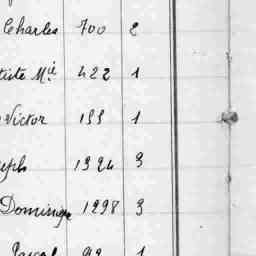 Charles 700 2
tiste Mie 422 1
Victor 133 1
seph 1324 3
Dominique 1298 3
Pascal 92 1